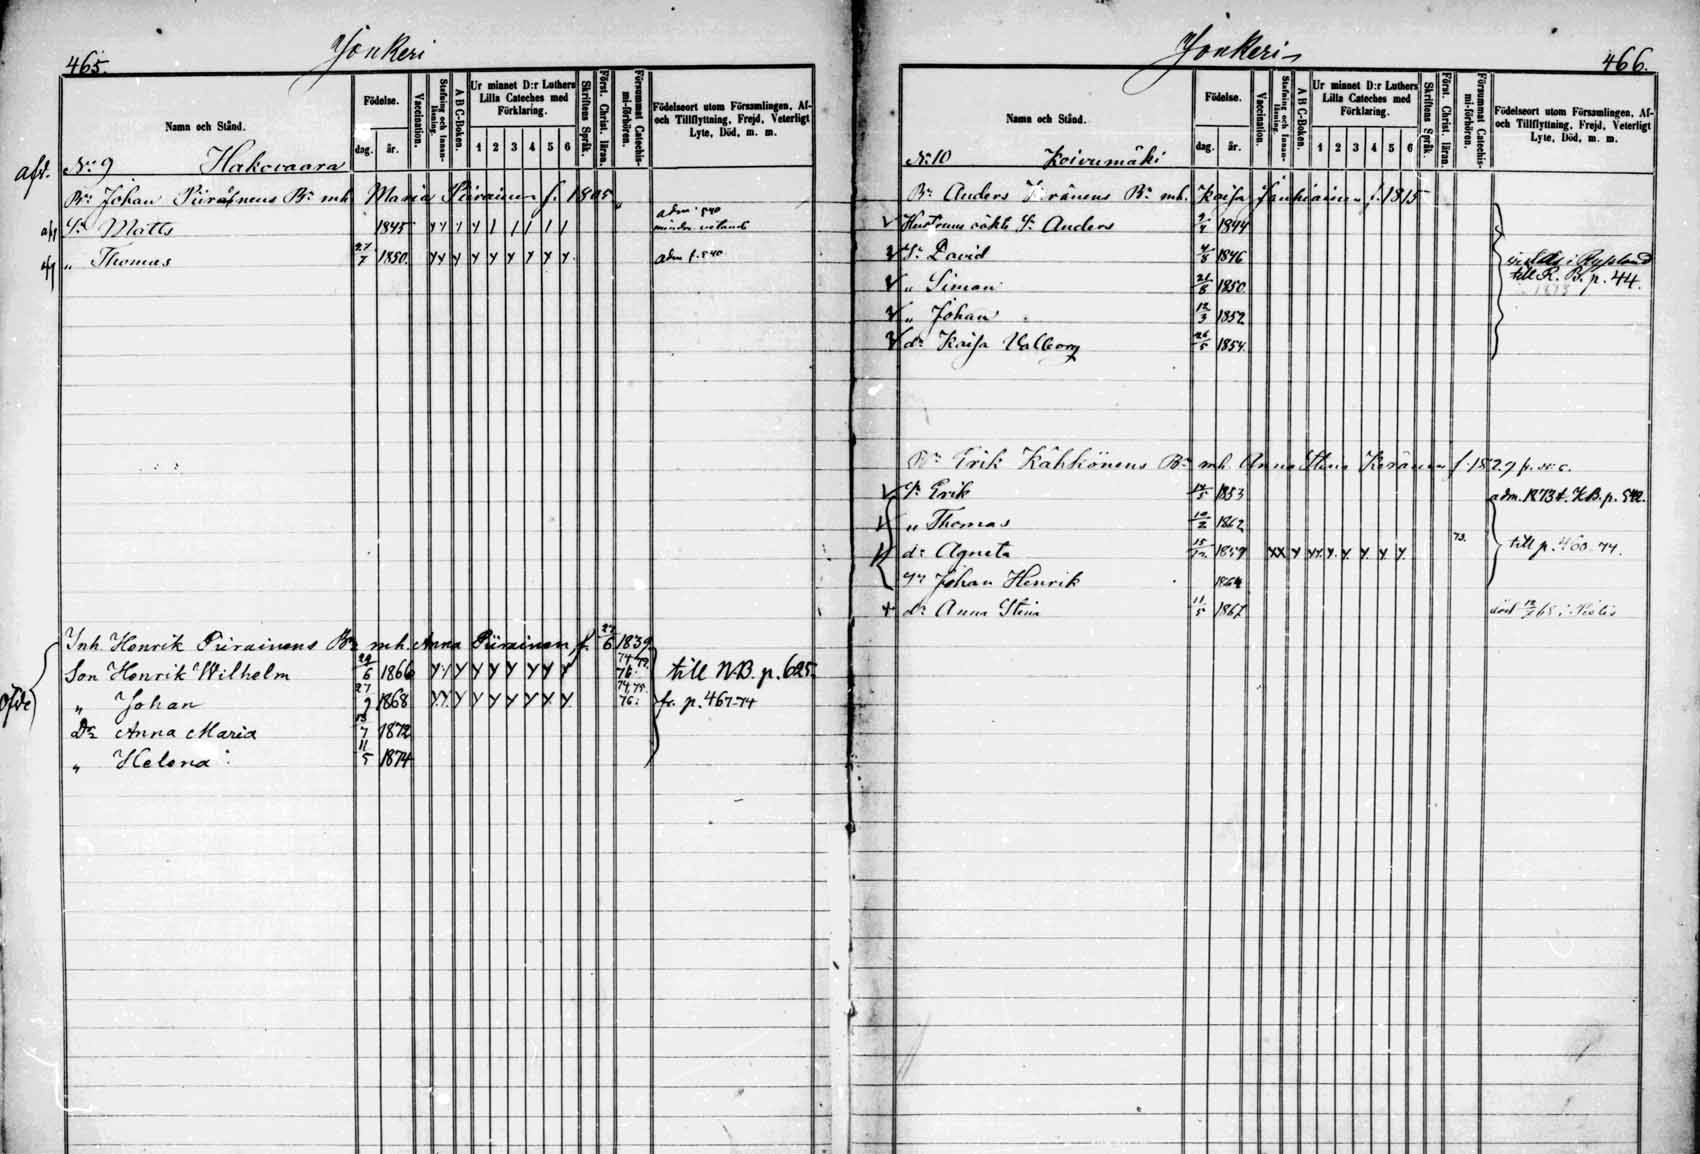 465.
Jonkeri
Namn och Stånd.
Födelse.
dag.
år.
Vaccination.
Stafning och Innan-läsning.
A B C-Boken.
Ur minnet D:r Luthers Lilla Cateches med Förklaring.
1 2 3 4 5 6
Skriftens Språk.
Först. Christ. läran.
Försummat Catechis-mi-förhören.
Födelseort utom Församlingen, Af- och Tillflyttning, Frejd, Veterligt Lyte, Död, m. m.
No 9 Hakovaara
Bn Johan Piirainens Bn mh. Maria Piirainen f. 1805
Sn Matts 1845 adm. 540
" Thomas 27/7 1850 adm. f. 540
Inh. Henrik Piirainens Bn mh. Anna Piirainen f. 27/6 1839
Son Henrik Wilhelm 1866 till N.B. p. 625.
" Johan 27/9 1868 74, 75. 76. fr. p. 467-74
Dr Anna Maria 13/7 1872
" Helena 11/5 1874
Jonkeri
466.
Namn och Stånd.
Födelse.
dag.
år.
Vaccination.
Stafning och Innan-läsning.
A B C-Boken.
Ur minnet D:r Luthers Lilla Cateches med Förklaring.
1 2 3 4 5 6
Skriftens Språk.
Först. Christ. läran.
Försummat Catechis-mi-förhören.
Födelseort utom Församlingen, Af- och Tillflyttning, Frejd, Veterligt Lyte, Död, m. m.
No 10 Koivumäki
Bn Anders Keränens Bn mh. Kaisa f. 1815
Hustruns oäkta Sn Anders 1844
Sn David 4/8 1846 i Ryssland
" Simon 21/8 1850 till R. B. p. 44.
" Johan 12/3 1852
dr Kaisa Valborg 26/5 1854
Bn Erik Kähkönens Bn mh. Anna Stina Keränen f. 1827
Sn Erik 1853 adm. 1873 t. K.B. p. 542.
" Thomas 10/2 1862
dr Agneta 1859 73. till p. 460-74.
Sn Johan Henrik 1864
dr Anna Stina 11/5 1867 död